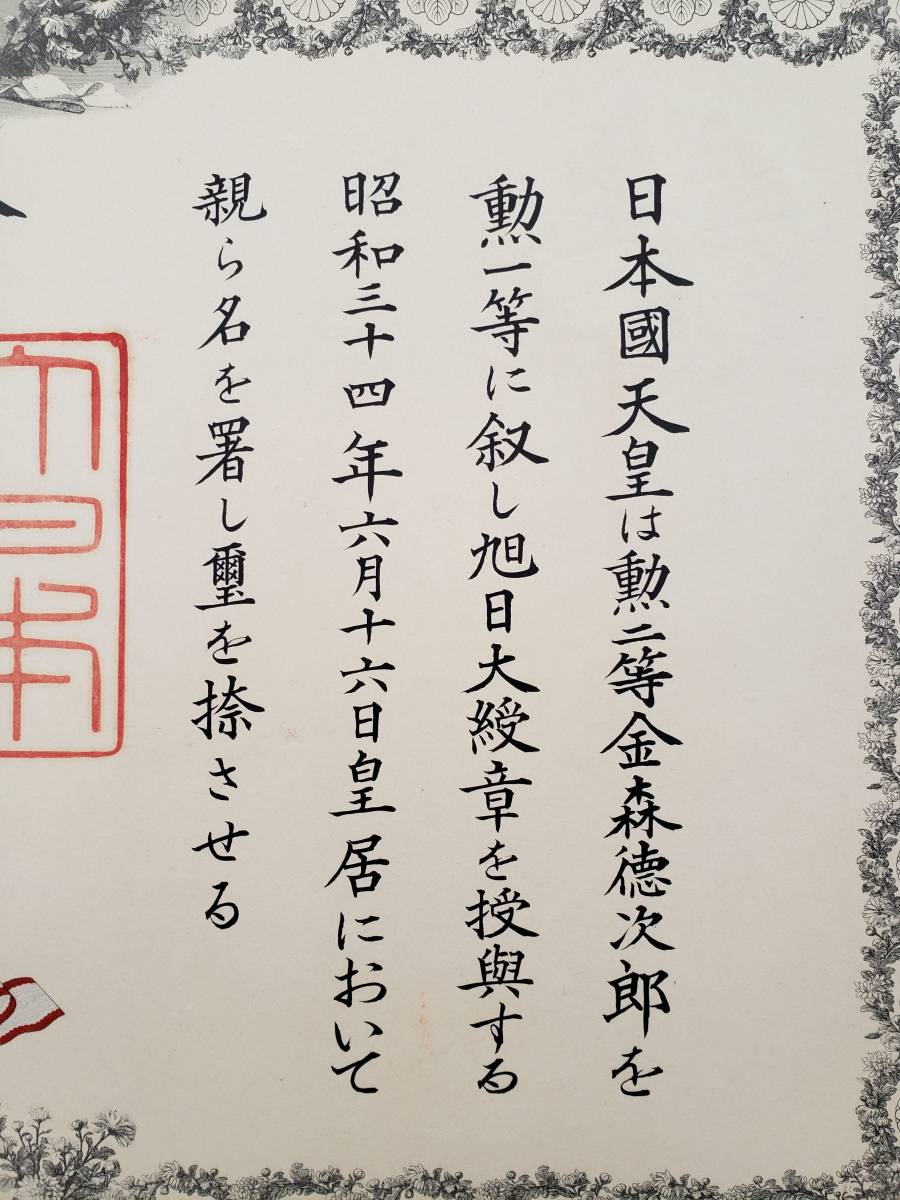 日本國天皇は勲二等金森德次郎を
勲一等に叙し旭日大綬章を授與する
昭和三十四年六月十六日皇居において
親ら名を署し璽を捺させる
大日本